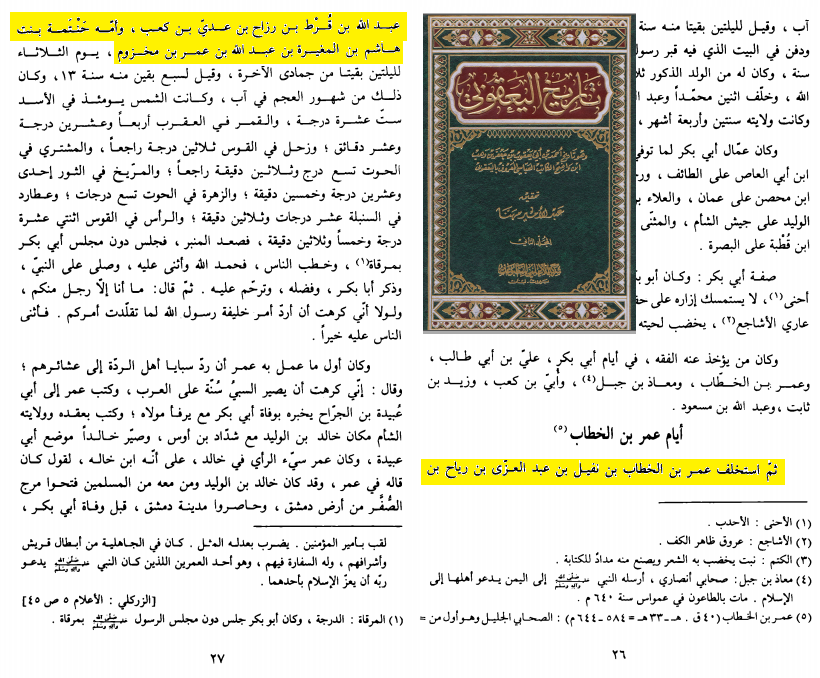 آب ، وقيل لليلتين بقيتا منه سنة
ودفن في البيت الذي فيه قبر رسول
سنة ، وكان له من الولد الذكور ثلا
الله ، وخلّف اثنين محمّداً وعبد ال
وكانت ولايته سنتين وأربعة أشهر ،
وكان عمّال أبي بكر لما توفي
ابن أبي العاص على الطائف ، ور
ابن محصن على عمان ، والعلاء بر
الوليد على جيش الشأم ، والمثنّى
ابن قُطْبة على البصرة .
صفة أبي بكر : وكان أبو بك
أحنى(١) ، لا يستمسك إزاره على حقو
عاري الأشاجع(٢) ، يخضب لحيته
تاريخ اليعقوبي
تحقيق
عبد الأمير مهنا
المجلد الثاني
وكان من يؤخذ عنه الفقه ، في أيام أبي بكر ، عليّ بن أبي طالب ،
وعمر بن الخطّاب ، ومعاذ بن جبل(٤) ، وأُبيّ بن كعب ، وزيد بن
ثابت ، وعبد الله بن مسعود .
أيام عمر بن الخطاب (٥)
ثمّ استخلف عمر بن الخطاب بن نفيل بن عبد العزّى بن رياح بن
(١) الأحنى : الأحدب .
(٢) الأشاجع : عروق ظاهر الكف .
(٣) الكتم : نبت يخضب به الشعر ويصنع منه مدادٌ للكتابة .
(٤) معاذ بن جبل: صحابي أنصاري ، أرسله النبي ﷺ إلى اليمن يدعو أهلها إلى
الإسلام . مات بالطاعون في عمواس سنة ٦٤٠ م .
(٥) عمر بن الخطاب (٤٠ ق . هـ ـ ٣٣ هـ = ٥٨٤ ـ ٦٤٤ م) : الصحابي الجليل وهو أول من =
٢٦
عبد الله بن قُرْط بن رزاح بن عديّ بن كعب ، وأمّه حَنْتَمة بنت
هاشم بن المغيرة بن عبد الله بن عمر بن مخزوم ، يوم الثلاثاء
لليلتين بقيتا من جمادى الآخرة ، وقيل لسبع بقين منه سنة ١٣ ، وكان
ذلك من شهور العجم في آب ، وكانت الشمس يومئذ في الأسد
ستّ عشرة درجة ، والقمر في العقرب أربعاً وعشرين درجة
وعشر دقائق ؛ وزحل في القوس ثلاثين درجة راجعاً ، والمشتري في
الحوت تسع درج وثلاثين دقيقة راجعاً ؛ والمرّيخ في الثور إحدى
وعشرين درجة وخمسين دقيقة ؛ والزهرة في الحوت تسع درجات ؛ وعطارد
في السنبلة عشر درجات وثلاثين دقيقة ؛ والرأس في القوس اثنتي عشرة
درجة وخمساً وثلاثين دقيقة ، فصعد المنبر ، فجلس دون مجلس أبي بكر
بمرقاة(١) ، وخطب الناس ، فحمد الله وأثنى عليه ، وصلى على النبيّ ،
وذكر أبا بكر ، وفضله ، وترحّم عليه . ثمّ قال: ما أنا إلّا رجل منكم ،
ولولا أنّي كرهت أن أردّ أمر خليفة رسول الله لما تقلّدت أمركم . فأثنى
الناس عليه خيراً .
وكان أول ما عمل به عمر أن ردّ سبايا أهل الردّة إلى عشائرهم ؛
وقال : إنّي كرهت أن يصير السبيُ سُنّة على العرب ، وكتب عمر إلى أبي
عُبيدة بن الجرّاح يخبره بوفاة أبي بكر مع يرفأ مولاه ؛ وكتب بعقده وولايته
الشأم مكان خالد بن الوليد مع شدّاد بن أوس ، وصيّر خالداً موضع أبي
عبيدة ، وكان عمر سيّء الرأي في خالد ، على أنّه ابن خاله ، لقول كان
قاله في عمر ، وقد كان خالد بن الوليد ومن معه من المسلمين فتحوا مرج
الصُّفَّر من أرض دمشق ، وحاصروا مدينة دمشق ، قبل وفاة أبي بكر ،
لقب بأمير المؤمنين . يضرب بعدله المثل . كان في الجاهلية من أبطال قريش
وأشرافهم ، وله السفارة فيهم ، وهو أحد العمرين اللذين كان النبي ﷺ يدعو
ربّه أن يعزّ الإسلام بأحدهما .
[الزركلي : الأعلام ٥ ص ٤٥]
(١) المرقاة : الدرجة ، وكان أبو بكر جلس دون مجلس الرسول ﷺ بمرقاة .
٢٧